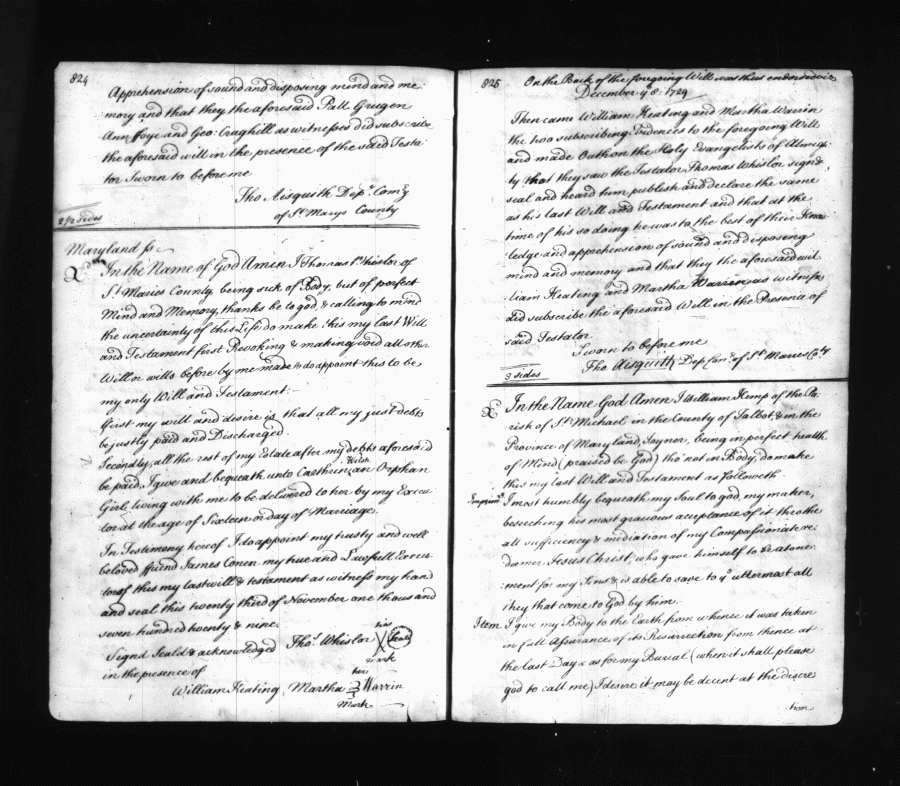 824
Apprehension of sound and disposing mind and me
mory and that they the aforesaid Pall Gresgen
Ann ffoye and Geo: Craghill as witnesses did subscribe
the aforesaid will in the presence of the said Testa
tor Sworn to before me
Tho. Aisquith Dep.ty Com.ry
of St Marys County
2 1/2 sides
Maryland ss
In the Name of God Amen I Thomas Whislor of
St Maries County being sick of Body, but of perfect
Mind and Memory, thanks be to god, & calling to mind
the uncertainty of this Life do make this my last Will
and Testament first Revoking & making void all other
Will or wills before by me made & do appoint this to be
my only Will and Testament
first my will and desire is, that all my just debts
be justly paid and Discharged
Secondly, all the rest of my Estate after my debts aforesaid
be paid, I give and bequeath unto Orphan
Girl, living with me to be delivered to her by my Execu
tor at the age of Sixteen or day of Marriage.
In Testimony hereof I do appoint my trusty and well
beloved ffriend James Conen my true and Lawfull Execu
tor of this my last will & testament as witness my hand
and seal this twenty third of November one thousand
seven hundred twenty & nine.
Signd Seald & acknowledged Thos Whislor his X mark Seal
in the presence of
William Keating, Martha her 3 Mark Warrin
825
On the Back of the foregoing Will was thus endorsed viz
December ye 8: 1729
Then came William Keating and Martha Warrin
the two subscribing Evidences to the foregoing Will
and made Oath on the Holy Evangelists of Almigh
ty that they saw the Testator Thomas Whislor sign,
seal and heard him publish and declare the same
as his last Will and Testament and that at the
time of his so doing he was to the best of their Know
ledge and apprehension of sound and disposing
mind and memory and that they the aforesaid Wil
liam Keating and Martha Warrin as witnesses
did subscribe the aforesaid Will in the Presence of
said Testator
Sworn to before me
Tho. Aisquith Dep Com.ry of St Maries Co.ty
3 sides
In the Name God Amen I William Kemp of the Pa
rish of St Michael in the County of Talbot, & in the
Province of Maryland, Joyner, being in perfect health
of Mind (praised be God) tho' not in Body, do make
this my last Will and Testament as followeth
Imprimis I most humbly bequeath my Soul to god, my maker,
beseeching his most gracious acceptance of it thro the
all sufficiency & mediation of my Compassionate re:
deemer Jesus Christ, who gave himself to be atone:
:ment for my Sins & is able to save to ye uttermost all
they that come to God by him.
Item I give my Body to the Earth from whence it was taken
in full Assurance of its Resurrection from thence at
the last Day & as for my Burial (when it shall please
god to call me) I desire it may be decent at the discre
tion